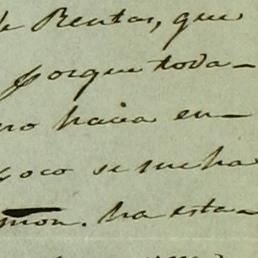 de Rentas, que
porque toda-
no hacia en-
poco se me ha
mon. ha esta-